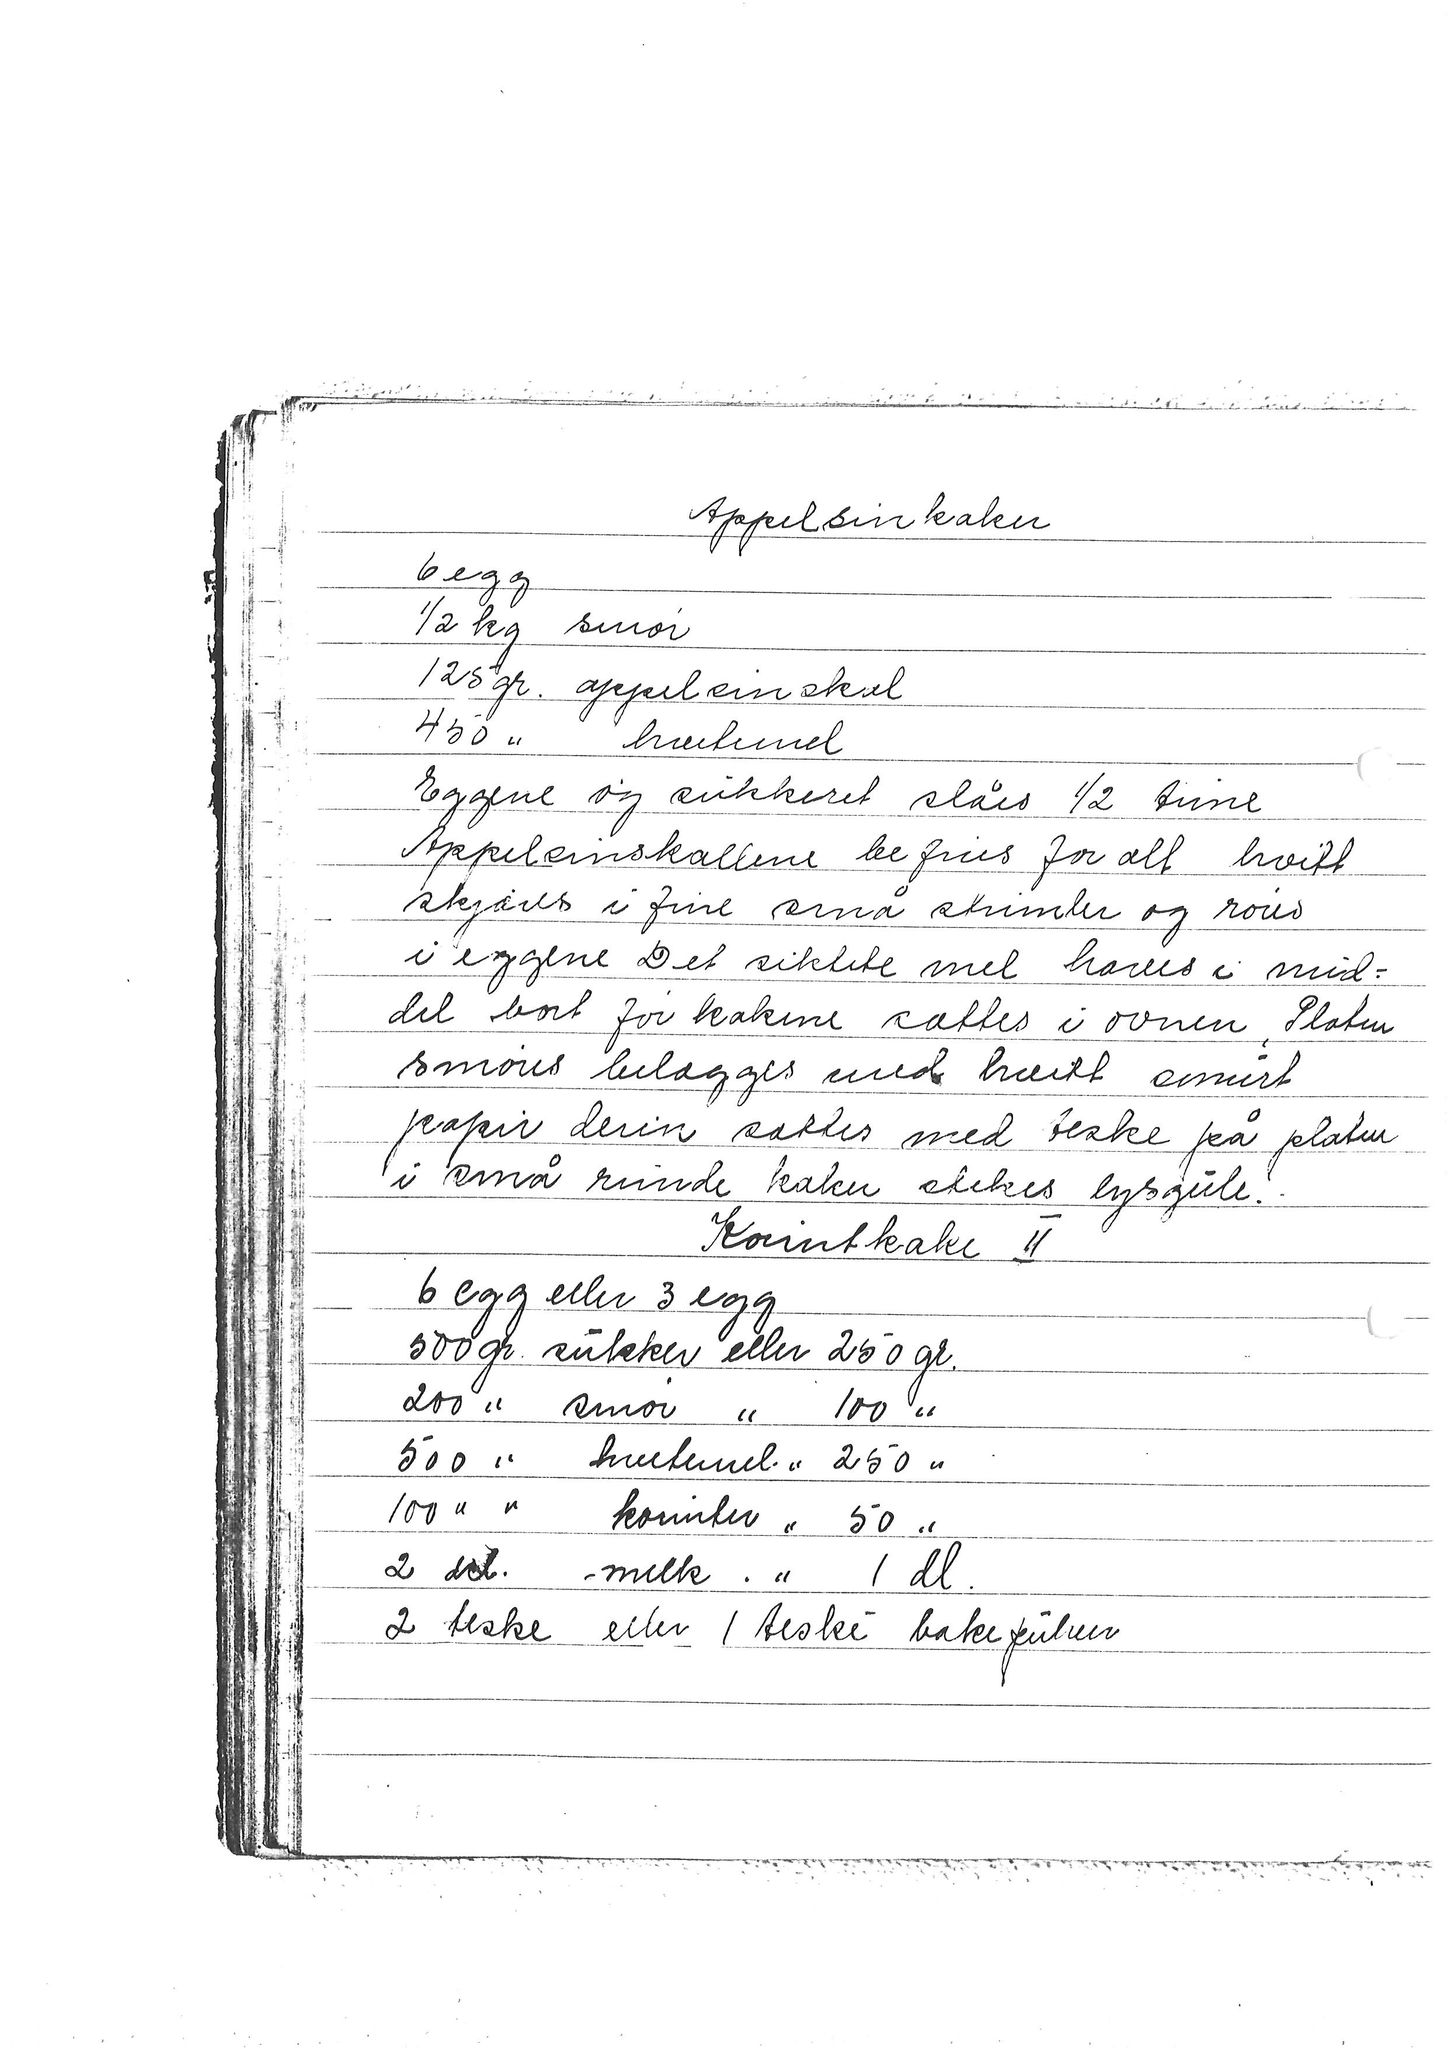 Appelsinkaker
6 egg
1/2 kg smör
125 gr. appelsinskal
450 " hvetemel
Eggene og sukkeret slåes 1/2 time
Appelsinskallene befries for alt hvitt
skjæres i fine små strimler og röres
i eggene Det siktete mel haves i mid=
del bort för kakene sættes i ovnen, Platen
smöres belægges med hvitt smurt
papir derin sættes med teske på platen
i små runde kaker stekes lysgule.
Korintkake II
6 egg eller 3 egg
500 gr. sukker eller 250 gr.
200 " smör " 100 "
500 " hvetemel. " 250 "
100 " " korinter " 50 "
2 del. melk . " 1 dl.
2 teske eller 1 teske bakepulver